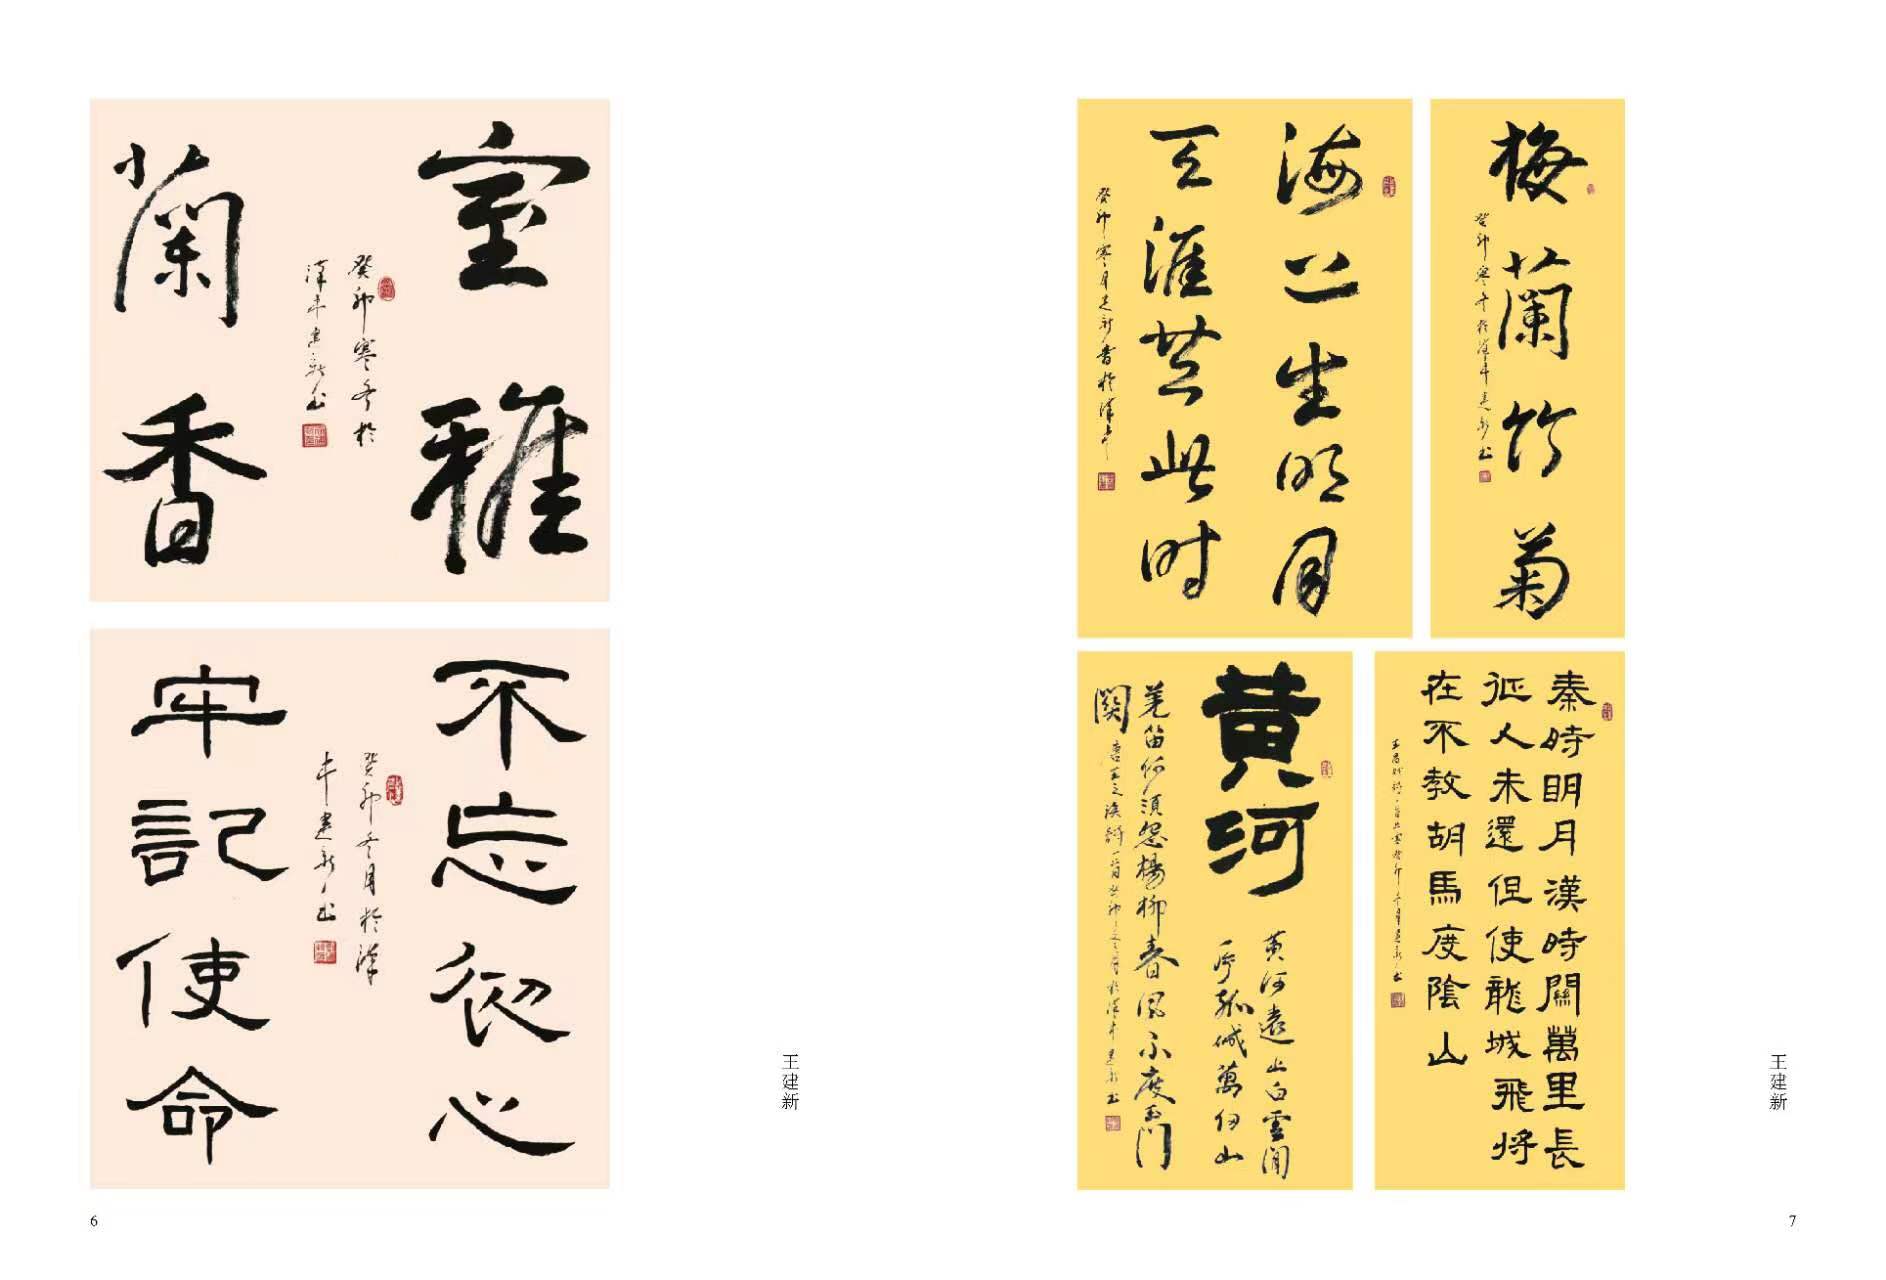 室雅
蘭香
癸卯寒冬於
漢中建新书
不忘初心
牢記使命
癸卯冬月於漢
中建新书
王建新
6
梅蘭竹菊
癸卯寒冬於漢中建新书
海上生明月
天涯共此时
癸卯寒月建新書於漢中
黄河
黄河遠上白雲間
一片孤城萬仞山
羌笛何須怨楊柳春風不度玉門
關
唐王之涣詩一首癸卯冬月於漢中建新书
秦時明月漢時關萬里長
征人未還但使龍城飛將
在不教胡馬度陰山
王昌龄詩一首
王建新
7